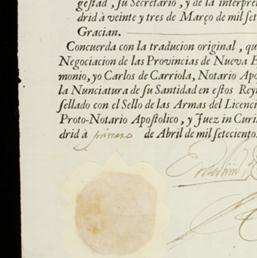 gestad, su Secretario, y de la interpre
drid à veinte y tres de Março de mil set
Gracian.
Concuerda con la traducion original, qu
Negociacion de las Provincias de Nueva E
monio, yo Carlos de Carriola, Notario Apo
la Nunciatura de su Santidad en estos Rey
sellado con el Sello de las Armas del Licenc
Proto-Notario Apostolico, y Juez in Curi
drid à primero de Abril de mil setecientos